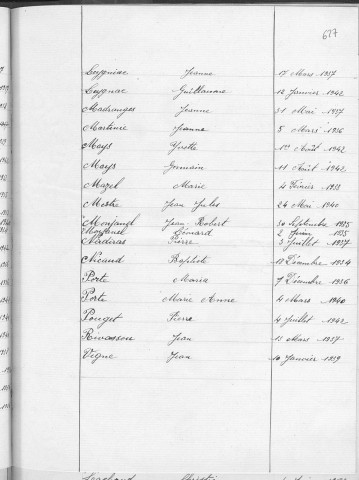 677
Leygniac Jeanne 17 Mars 1937
Leygnac Guillaume 12 Janvier 1942
Madranges Jeanne 31 Mai 1937
Martinie Jeanne 5 Mars 1936
Mays Yvette 1er Août 1942
Mays Germain 11 Août 1942
Mazel Marie 4 Février 1938
Mestre Jean Jules 24 Mai 1940
Monjanel Jean-Robert 30 Septembre 1935
Monjanel Léonard 2 Juin 1935
Nadiras Pierre 3 Juillet 1937
Nicaud Baptiste 18 Décembre 1934
Porte Maria 7 Décembre 1936
Porte Marie Anne 4 Mars 1940
Pouget Pierre 4 Juillet 1942
Rivassou Jean 15 Mars 1937
Vigne Jean 10 Janvier 1939